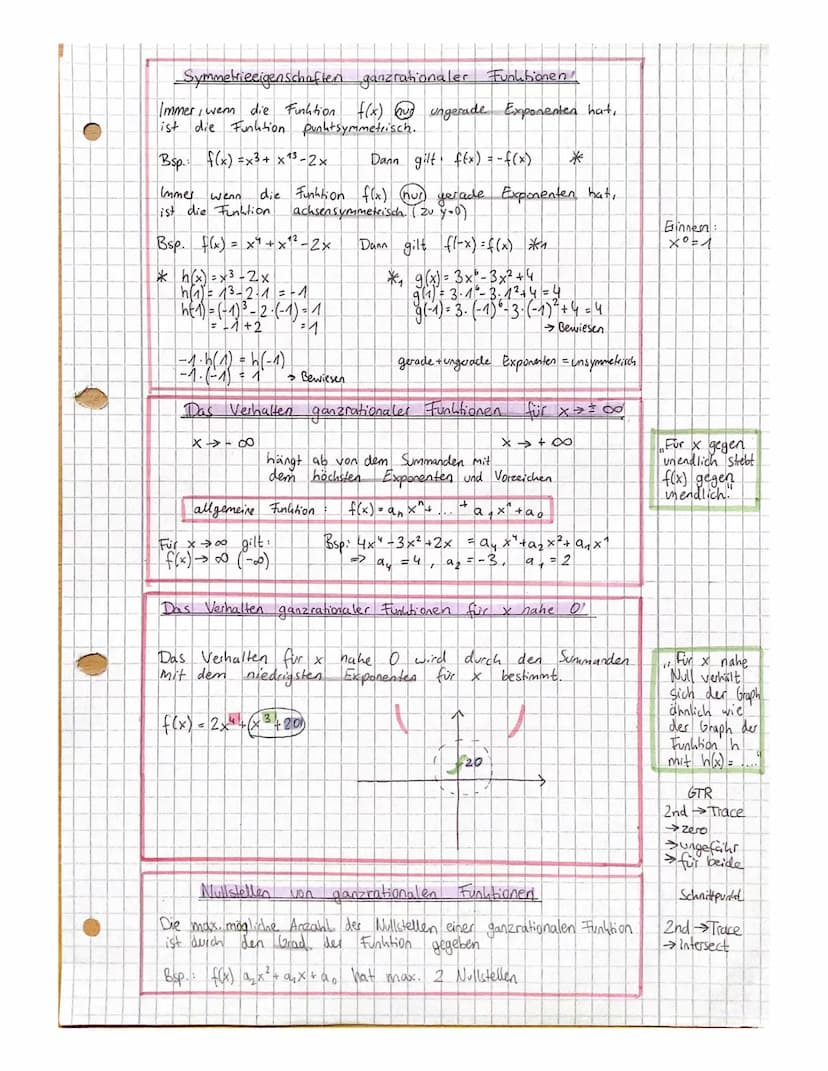 Symmetrieeigenschaften ganzrationaler Funktionen!
Immer, wenn die Funktion f(x) nur ungerade Exponenten hat,
ist die Funktion punktsymmetrisch.
Bsp.: f(x) = x³ + x¹³ - 2x Dann gilt: f(x) = -f(x) *
Immer wenn die Funktion f(x) nur gerade Exponenten hat,
ist die Funktion achsensymmetrisch. (zu y=0)
Bsp. f(x) = x⁴ + x¹² - 2x Dann gilt f(-x) = f(x) *₁
Erinnern:
x⁰ = 1
* h(x) = x³ - 2x
h(1) = 1³ - 2·1 = -1
h(-1) = (-1)³ - 2·(-1) = 1
= -1 + 2 = 1
*₁ g(x) = 3x⁶ - 3x² + 4
g(1) = 3·1⁶ - 3·1² + 4 = 4
g(-1) = 3·(-1)⁶ - 3·(-1)² + 4 = 4
→ Bewiesen
-1·h(1) = h(-1)
-1·(-1) = 1 → Bewiesen
gerade + ungerade Exponenten = unsymmetrisch
Das Verhalten ganzrationaler Funktionen für x → ± ∞
x → - ∞ x → + ∞
hängt ab von dem Summanden mit
dem höchsten Exponenten und Vorzeichen
allgemeine Funktion: f(x) = aₙxⁿ + ... + a₁x¹ + a₀
Für x → ∞ gilt:
f(x) → ∞ (-∞)
Bsp: 4x⁴ - 3x² + 2x = a₄x⁴ + a₂x² + a₁x¹
=> a₄ = 4, a₂ = -3, a₁ = 2
„Für x gegen
unendlich strebt
f(x) gegen
unendlich."
Das Verhalten ganzrationaler Funktionen für x nahe 0!
Das Verhalten für x nahe 0 wird durch den Summanden
mit dem niedrigsten Exponenten für x bestimmt.
f(x) = 2x⁴ + x³ + 20
20
„Für x nahe
Null verhält
sich der Graph
ähnlich wie
der Graph der
Funktion h
mit h(x) = ...."
GTR
2nd → Trace
→ zero
→ ungefähr
→ für beide
Schnittpunkt
2nd → Trace
→ intersect
Nullstellen von ganzrationalen Funktionen
Die max. mögliche Anzahl der Nullstellen einer ganzrationalen Funktion
ist durch den Grad der Funktion gegeben
Bsp.: f(x) a₂x² + a₁x + a₀ hat max. 2 Nullstellen